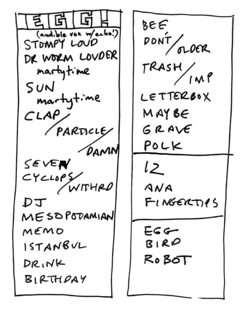 EGG!
(audible vox w/echo!)
STOMPY LOUD
DR WORM LOUDER
martytime
SUN
martytime
CLAP/
PARTICLE/
DAMN
SEVEN
CYCLOPS/
WITHRD
DJ
MESOPOTAMIAN
MEMO
ISTANBUL
DRINK
BIRTHDAY
BEE
DON'T/
OLDER
TRASH/
IMP
LETTERBOX
MAYBE
GRAVE
POLK
12
ANA
FINGERTIPS
EGG
BIRD
ROBOT